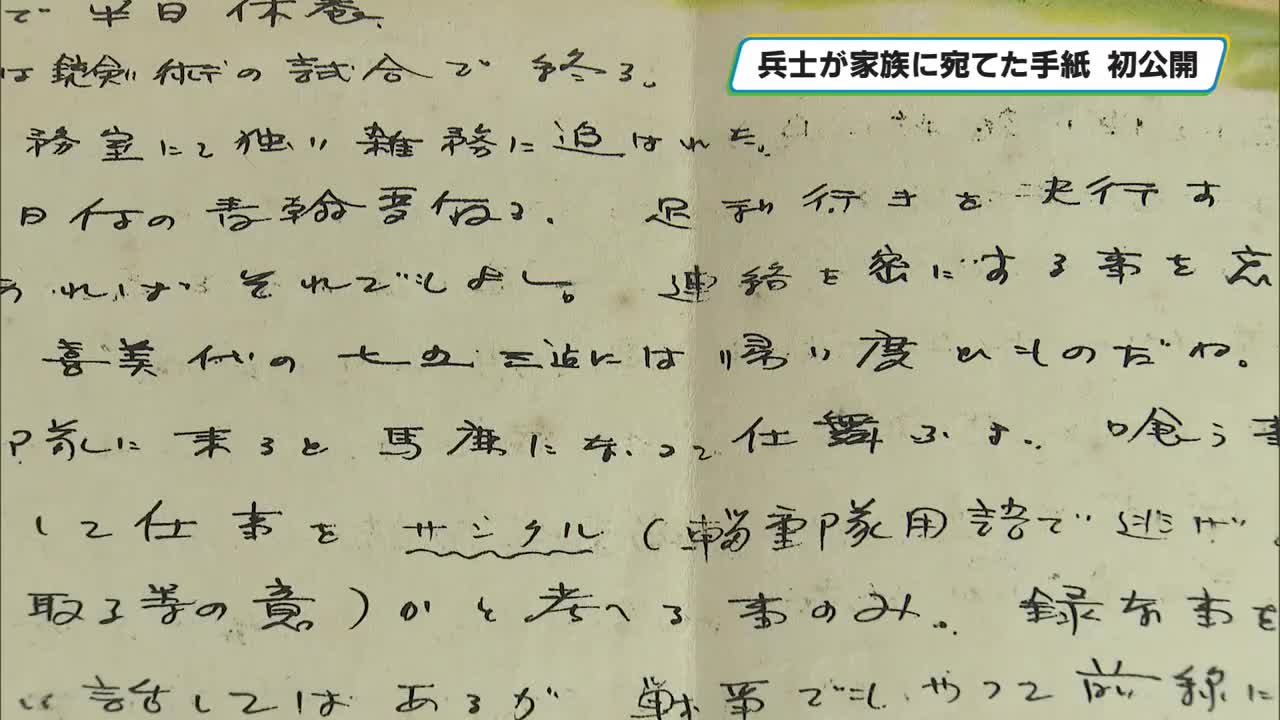 兵士が家族に宛てた手紙 初公開
で半日休養、
は銃剣術の試合で終る。
務室にて独り雑務に追はれた。
日付の書翰要領る. 足利行きを決行す
あればそれでもよし。 連絡を密にする事を忘
喜美代の七五三迄には帰り度いものだね。
隊に来ると馬鹿になって仕舞ふよ. 喰う事
して仕事をサシクル(輜重隊用語で逃げ
取る等の意)かと考へる事のみ. 録な事を
い話してはあるが 戦争でもやって前線に